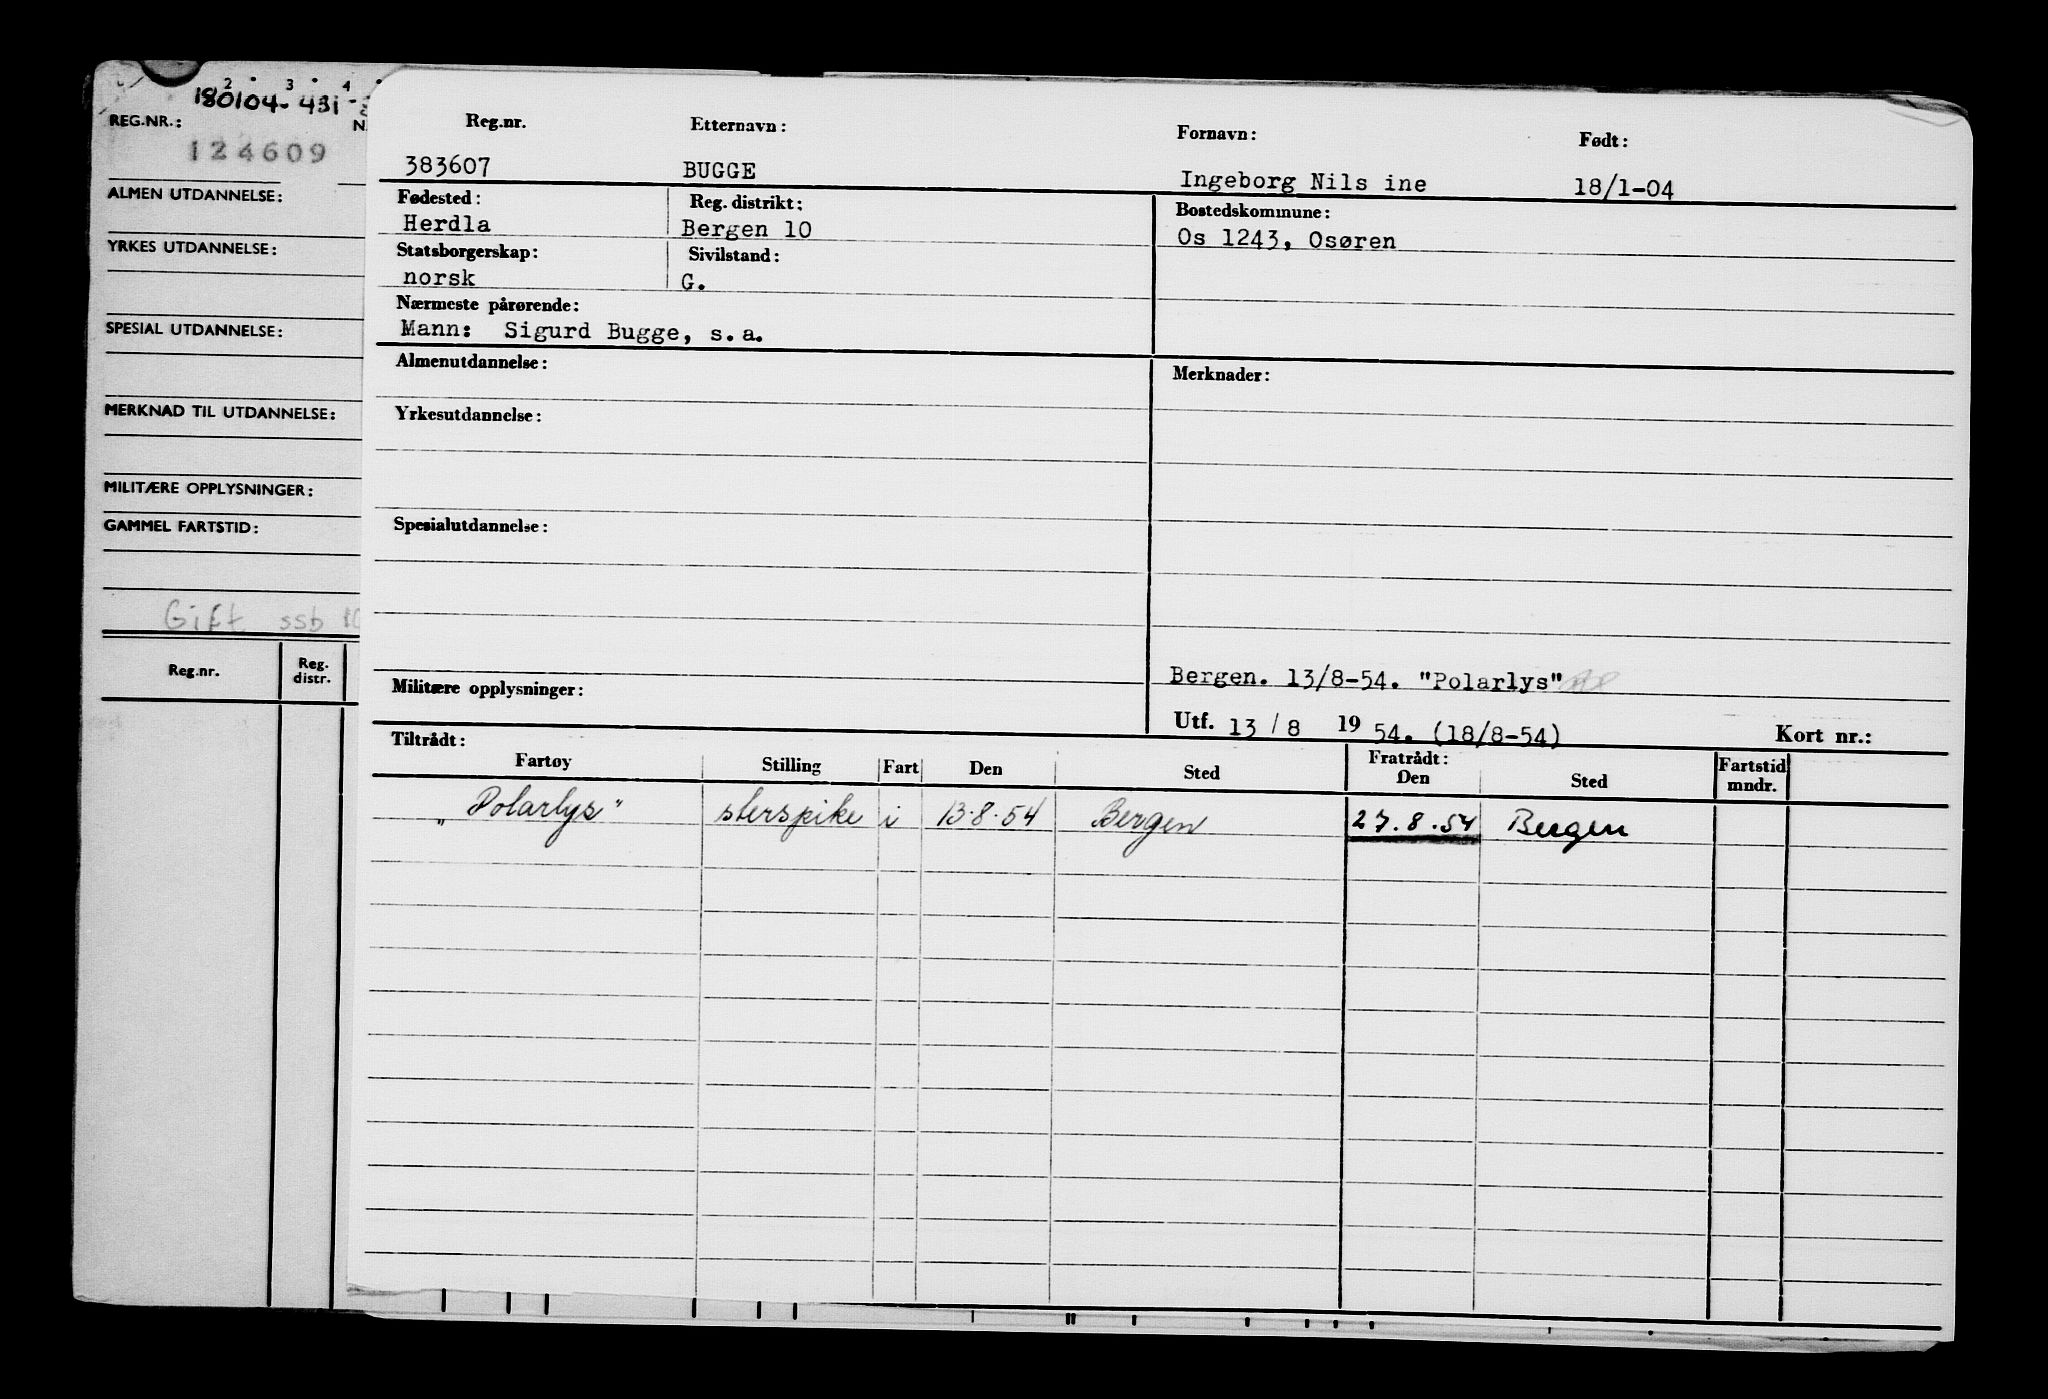 180104-431-
2 3 4
REG.NR.:
124609
ALMEN UTDANNELSE:
YRKES UTDANNELSE:
SPESIAL UTDANNELSE:
MERKNAD TIL UTDANNELSE:
MILITÆRE OPPLYSNINGER:
GAMMEL FARTSTID:
Gift ssb 10
Reg.nr. Reg. distr.
Reg.nr. Etternavn: Fornavn: Født:
383607 BUGGE Ingeborg Nils ine 18/1-04
Fødested: Reg. distrikt: Bostedskommune:
Herdla Bergen 10 Os 1243, Osøren
Statsborgerskap: Sivilstand:
norsk G.
Nærmeste pårørende:
Mann: Sigurd Bugge, s.a.
Almenutdannelse: Merknader:
Yrkesutdannelse:
Spesialutdannelse:
Bergen. 13/8-54. "Polarlys"
Militære opplysninger:
Utf. 13 / 8 19 54. (18/8-54) Kort nr.:
Tiltrådt: Fratrådt:
Fartøy Stilling Fart Den Sted Den Sted Fartstid mndr.
„Polarlys" sterspike i 13.8.54 Bergen 27.8.54 Bergen